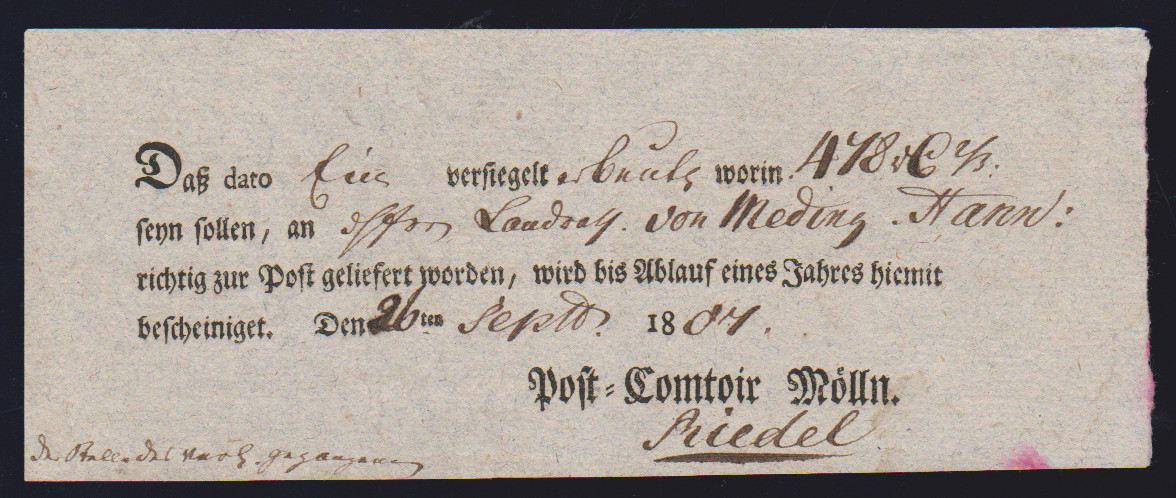 Daß dato Ein versiegelter beutel worin 478 
seyn sollen, an Landrath von Meding Hann:
richtig zur Post geliefert worden, wird bis Ablauf eines Jahres hiemit
bescheiniget. Den 26ten Septb. 1807.
Post-Comtoir Mölln.
Riedel